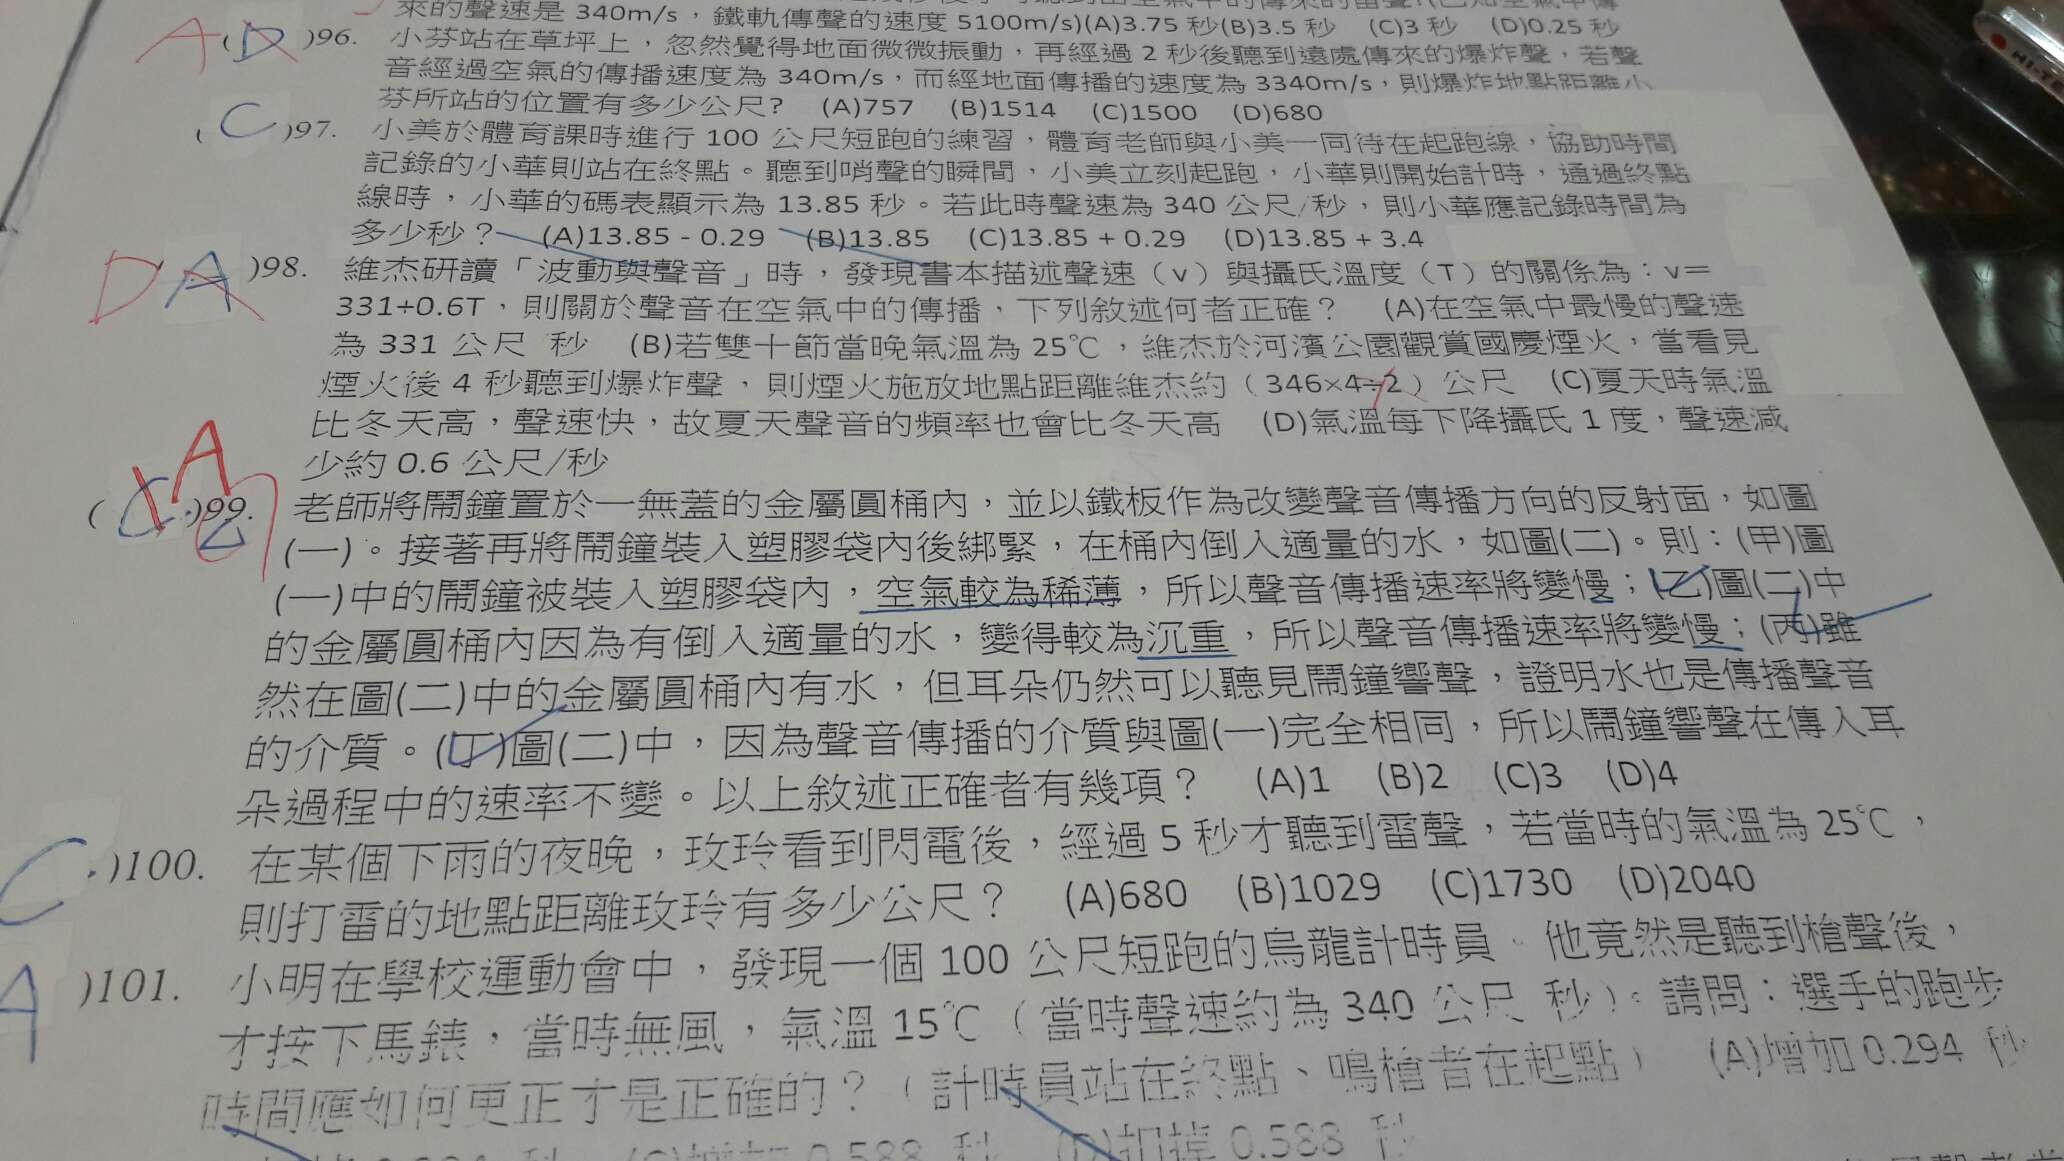 來的聲速是 340m/s，鐵軌傳聲的速度 5100m/s)(A)3.75 秒(B)3.5 秒 (C)3 秒 (D)0.25 秒
A ( D )96. 小芬站在草坪上，忽然覺得地面微微振動，再經過 2 秒後聽到遠處傳來的爆炸聲，若聲
音經過空氣的傳播速度為 340m/s，而經地面傳播的速度為 3340m/s，則爆炸地點距離小
芬所站的位置有多少公尺? (A)757 (B)1514 (C)1500 (D)680
( C )97. 小美於體育課時進行 100 公尺短跑的練習，體育老師與小美一同待在起跑線，協助時間
記錄的小華則站在終點。聽到哨聲的瞬間，小美立刻起跑，小華則開始計時，通過終點
線時，小華的碼表顯示為 13.85 秒。若此時聲速為 340 公尺/秒，則小華應記錄時間為
多少秒？ (A)13.85 - 0.29 (B)13.85 (C)13.85 + 0.29 (D)13.85 + 3.4
D A )98. 維杰研讀「波動與聲音」時，發現書本描述聲速（v）與攝氏溫度（T）的關係為：v＝
331+0.6T，則關於聲音在空氣中的傳播，下列敘述何者正確？ (A)在空氣中最慢的聲速
為 331 公尺 秒 (B)若雙十節當晚氣溫為 25℃，維杰於河濱公園觀賞國慶煙火，當看見
煙火後 4 秒聽到爆炸聲，則煙火施放地點距離維杰約（346×4÷2）公尺 (C)夏天時氣溫
比冬天高，聲速快，故夏天聲音的頻率也會比冬天高 (D)氣溫每下降攝氏 1 度，聲速減
少約 0.6 公尺/秒
A
( C )99. 老師將鬧鐘置於一無蓋的金屬圓桶內，並以鐵板作為改變聲音傳播方向的反射面，如圖
(一)。接著再將鬧鐘裝入塑膠袋內後綁緊，在桶內倒入適量的水，如圖(二)。則：(甲)圖
(一)中的鬧鐘被裝入塑膠袋內，空氣較為稀薄，所以聲音傳播速率將變慢；(乙)圖(二)中
的金屬圓桶內因為有倒入適量的水，變得較為沉重，所以聲音傳播速率將變慢；(丙)雖
然在圖(二)中的金屬圓桶內有水，但耳朵仍然可以聽見鬧鐘響聲，證明水也是傳播聲音
的介質。(丁)圖(二)中，因為聲音傳播的介質與圖(一)完全相同，所以鬧鐘響聲在傳入耳
朵過程中的速率不變。以上敘述正確者有幾項？ (A)1 (B)2 (C)3 (D)4
C )100. 在某個下雨的夜晚，玫玲看到閃電後，經過 5 秒才聽到雷聲，若當時的氣溫為 25℃，
則打雷的地點距離玫玲有多少公尺？ (A)680 (B)1029 (C)1730 (D)2040
A )101. 小明在學校運動會中，發現一個 100 公尺短跑的烏龍計時員。他竟然是聽到槍聲後，
才按下馬錶，當時無風，氣溫 15℃（當時聲速約為 340 公尺 秒）。請問：選手的跑步
時間應如何更正才是正確的？（計時員站在終點、鳴槍者在起點） (A)增加 0.294 秒
秒 (C)增加 0.588 秒 (D)扣掉 0.588 秒